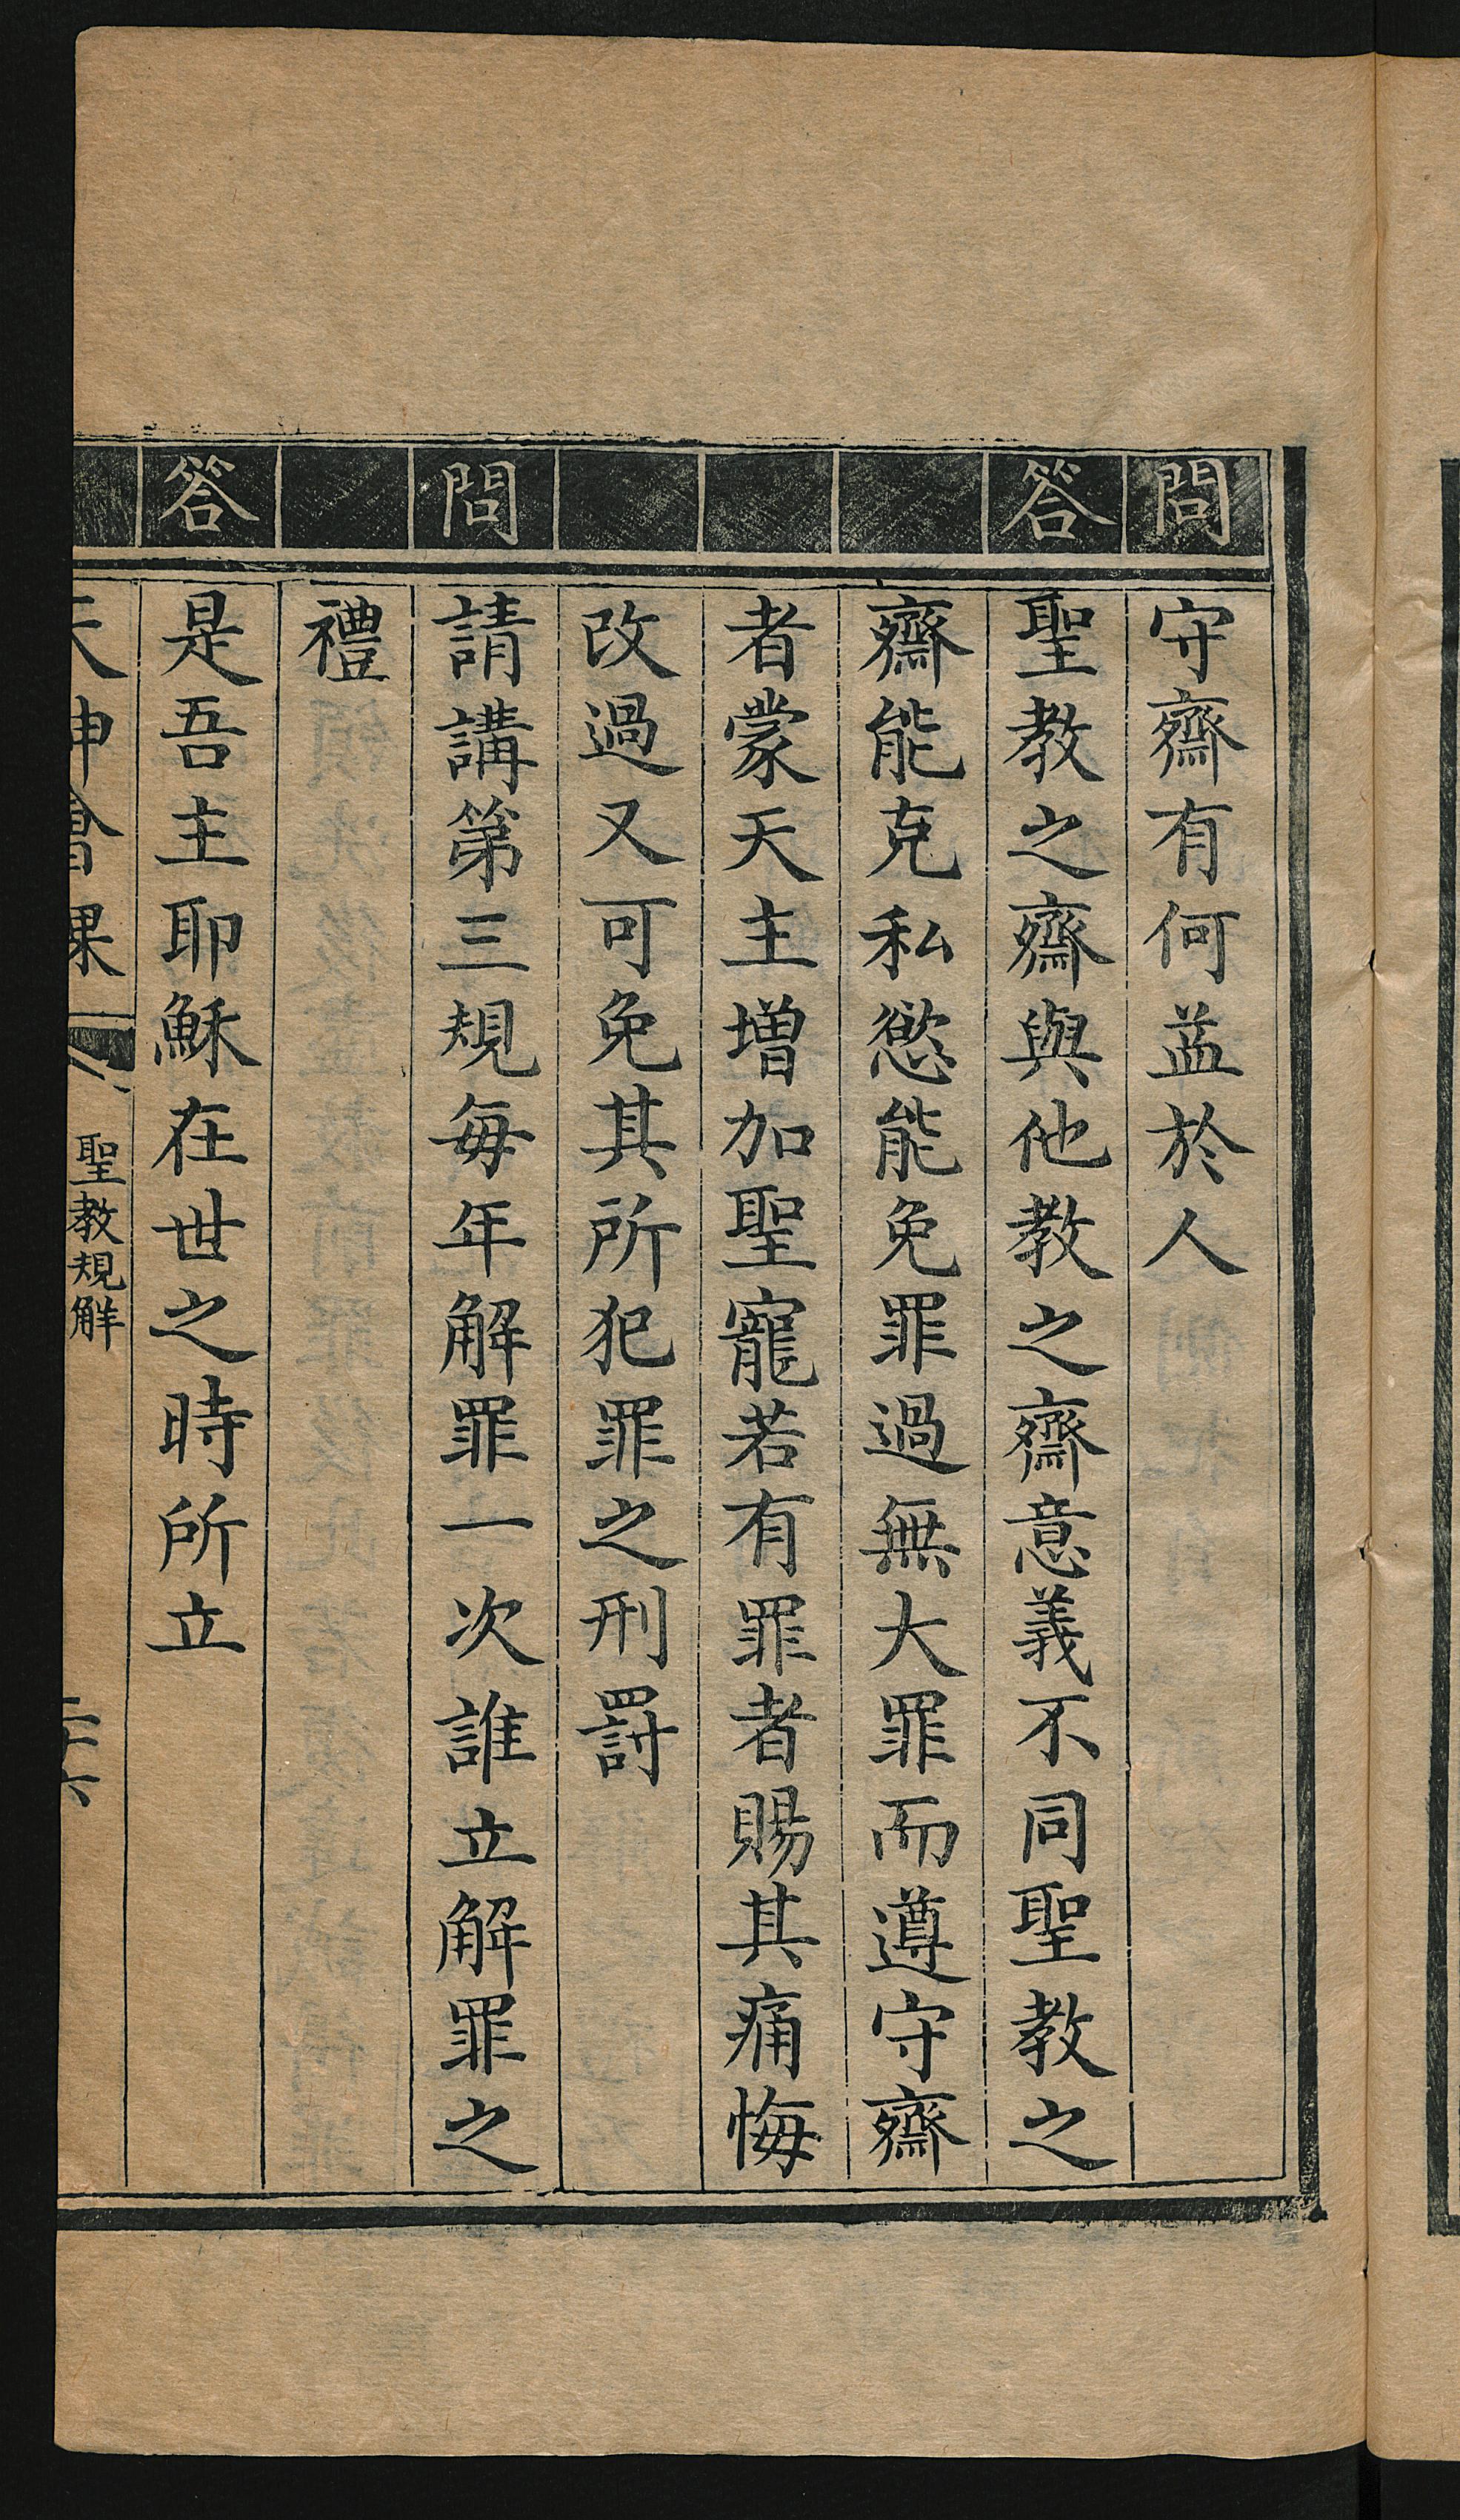 問 守齋有何益於人
答 聖教之齋與他教之齋意義不同聖教之
齋能克私慾能免罪過無大罪而遵守齋
者蒙天主增加聖寵若有罪者賜其痛悔
改過又可免其所犯罪之刑罰
問 請講第三規每年解罪一次誰立解罪之
禮
答 是吾主耶穌在世之時所立
天神會課 聖教規解 二六